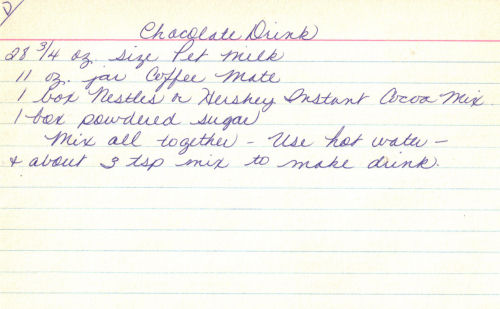 D
Chocolate Drink
28 3/4 oz. size Pet Milk
11 oz. jar Coffee Mate
1 box Nestles or Hershey Instant Cocoa Mix
1 box powdered sugar
Mix all together - Use hot water -
+ about 3 tsp mix to make drink.